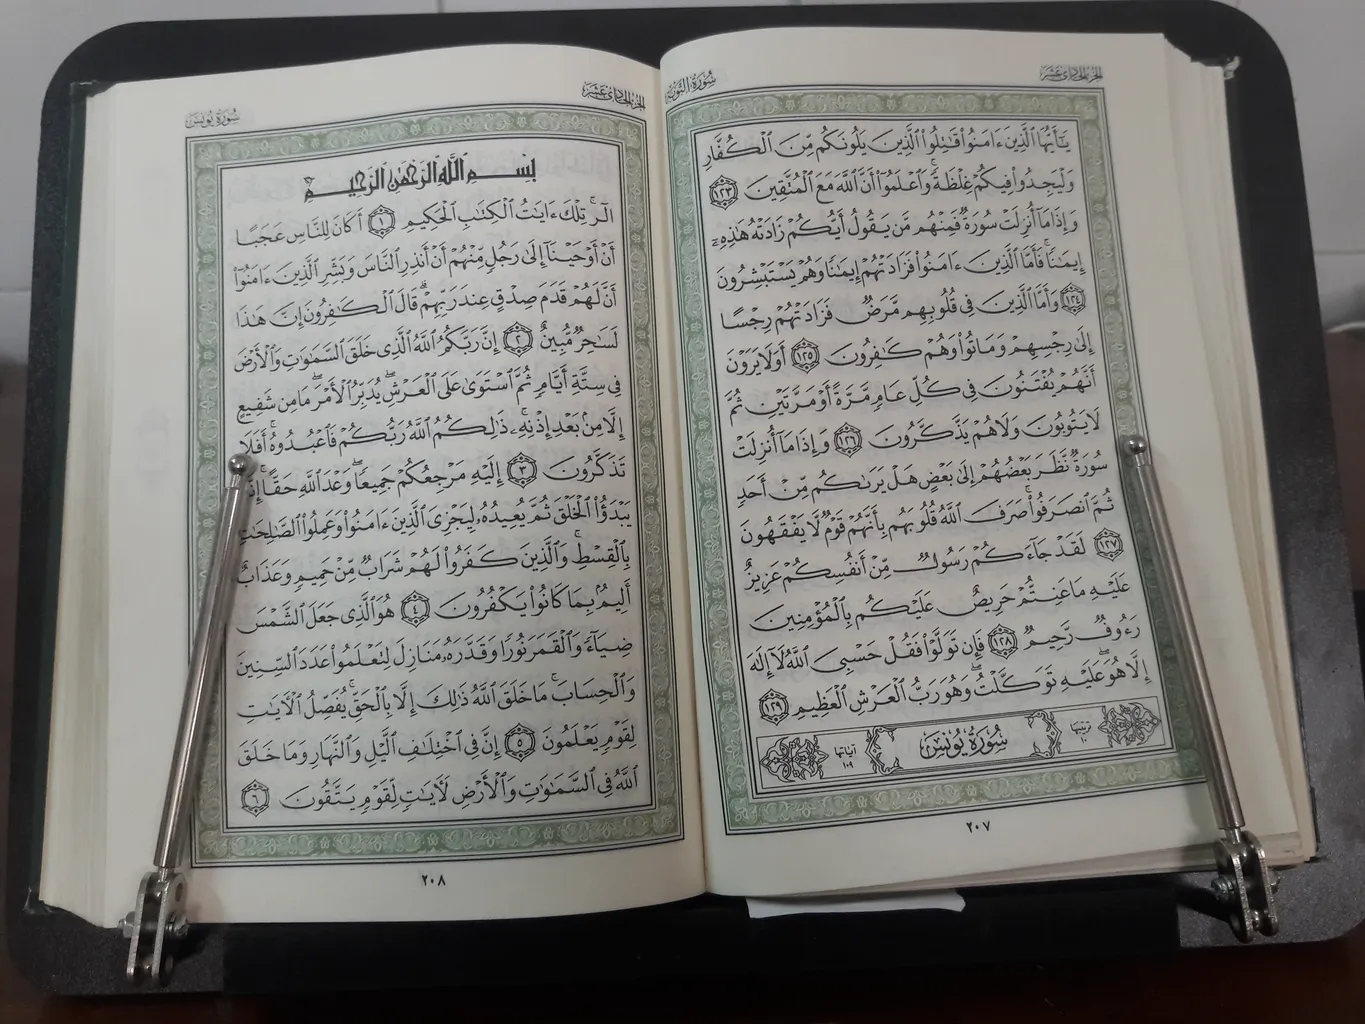 الجزء الحادي عشر
سورة التوبة
يَٰٓأَيُّهَا ٱلَّذِينَ ءَامَنُوا۟ قَٰتِلُوا۟ ٱلَّذِينَ يَلُونَكُم مِّنَ ٱلْكُفَّارِ
وَلْيَجِدُوا۟ فِيكُمْ غِلْظَةً ۚ وَٱعْلَمُوٓا۟ أَنَّ ٱللَّهَ مَعَ ٱلْمُتَّقِينَ ١٢٣
وَإِذَا مَآ أُنزِلَتْ سُورَةٌ فَمِنْهُم مَّن يَقُولُ أَيُّكُمْ زَادَتْهُ هَٰذِهِۦٓ
إِيمَٰنًا ۚ فَأَمَّا ٱلَّذِينَ ءَامَنُوا۟ فَزَادَتْهُمْ إِيمَٰنًا وَهُمْ يَسْتَبْشِرُونَ
١٢٤ وَأَمَّا ٱلَّذِينَ فِى قُلُوبِهِم مَّرَضٌ فَزَادَتْهُمْ رِجْسًا
إِلَىٰ رِجْسِهِمْ وَمَاتُوا۟ وَهُمْ كَٰفِرُونَ ١٢٥ أَوَلَا يَرَوْنَ
أَنَّهُمْ يُفْتَنُونَ فِى كُلِّ عَامٍ مَّرَّةً أَوْ مَرَّتَيْنِ ثُمَّ
لَا يَتُوبُونَ وَلَا هُمْ يَذَّكَّرُونَ ١٢٦ وَإِذَا مَآ أُنزِلَتْ
سُورَةٌ نَّظَرَ بَعْضُهُمْ إِلَىٰ بَعْضٍ هَلْ يَرَىٰكُم مِّنْ أَحَدٍ
ثُمَّ ٱنصَرَفُوا۟ ۚ صَرَفَ ٱللَّهُ قُلُوبَهُم بِأَنَّهُمْ قَوْمٌ لَّا يَفْقَهُونَ
١٢٧ لَقَدْ جَآءَكُمْ رَسُولٌ مِّنْ أَنفُسِكُمْ عَزِيزٌ
عَلَيْهِ مَا عَنِتُّمْ حَرِيصٌ عَلَيْكُم بِٱلْمُؤْمِنِينَ
رَءُوفٌ رَّحِيمٌ ١٢٨ فَإِن تَوَلَّوْا۟ فَقُلْ حَسْبِىَ ٱللَّهُ لَآ إِلَٰهَ
إِلَّا هُوَ ۖ عَلَيْهِ تَوَكَّلْتُ ۖ وَهُوَ رَبُّ ٱلْعَرْشِ ٱلْعَظِيمِ ١٢٩
ترتيبها ١٠ سُورَةُ يُونُسَ آياتها ١٠٩
٢٠٧
الجزء الحادي عشر
سورة يونس
بِسْمِ ٱللَّهِ ٱلرَّحْمَٰنِ ٱلرَّحِيمِ
الٓر ۚ تِلْكَ ءَايَٰتُ ٱلْكِتَٰبِ ٱلْحَكِيمِ ١ أَكَانَ لِلنَّاسِ عَجَبًا
أَنْ أَوْحَيْنَآ إِلَىٰ رَجُلٍ مِّنْهُمْ أَنْ أَنذِرِ ٱلنَّاسَ وَبَشِّرِ ٱلَّذِينَ ءَامَنُوٓا۟
أَنَّ لَهُمْ قَدَمَ صِدْقٍ عِندَ رَبِّهِمْ ۗ قَالَ ٱلْكَٰفِرُونَ إِنَّ هَٰذَا
لَسَٰحِرٌ مُّبِينٌ ٢ إِنَّ رَبَّكُمُ ٱللَّهُ ٱلَّذِى خَلَقَ ٱلسَّمَٰوَٰتِ وَٱلْأَرْضَ
فِى سِتَّةِ أَيَّامٍ ثُمَّ ٱسْتَوَىٰ عَلَى ٱلْعَرْشِ ۖ يُدَبِّرُ ٱلْأَمْرَ ۖ مَا مِن شَفِيعٍ
إِلَّا مِنۢ بَعْدِ إِذْنِهِۦ ۚ ذَٰلِكُمُ ٱللَّهُ رَبُّكُمْ فَٱعْبُدُوهُ ۚ أَفَلَا
تَذَكَّرُونَ ٣ إِلَيْهِ مَرْجِعُكُمْ جَمِيعًا ۖ وَعْدَ ٱللَّهِ حَقًّا ۚ
يَبْدَؤُا۟ ٱلْخَلْقَ ثُمَّ يُعِيدُهُۥ لِيَجْزِىَ ٱلَّذِينَ ءَامَنُوا۟ وَعَمِلُوا۟ ٱلصَّٰلِحَٰتِ
بِٱلْقِسْطِ ۚ وَٱلَّذِينَ كَفَرُوا۟ لَهُمْ شَرَابٌ مِّنْ حَمِيمٍ وَعَذَابٌ
أَلِيمٌۢ بِمَا كَانُوا۟ يَكْفُرُونَ ٤ هُوَ ٱلَّذِى جَعَلَ ٱلشَّمْسَ
ضِيَآءً وَٱلْقَمَرَ نُورًا وَقَدَّرَهُۥ مَنَازِلَ لِتَعْلَمُوا۟ عَدَدَ ٱلسِّنِينَ
وَٱلْحِسَابَ ۚ مَا خَلَقَ ٱللَّهُ ذَٰلِكَ إِلَّا بِٱلْحَقِّ ۚ يُفَصِّلُ ٱلْءَايَٰتِ
لِقَوْمٍ يَعْلَمُونَ ٥ إِنَّ فِى ٱخْتِلَٰفِ ٱلَّيْلِ وَٱلنَّهَارِ وَمَا خَلَقَ
ٱللَّهُ فِى ٱلسَّمَٰوَٰتِ وَٱلْأَرْضِ لَءَايَٰتٍ لِّقَوْمٍ يَتَّقُونَ ٦
٢٠٨